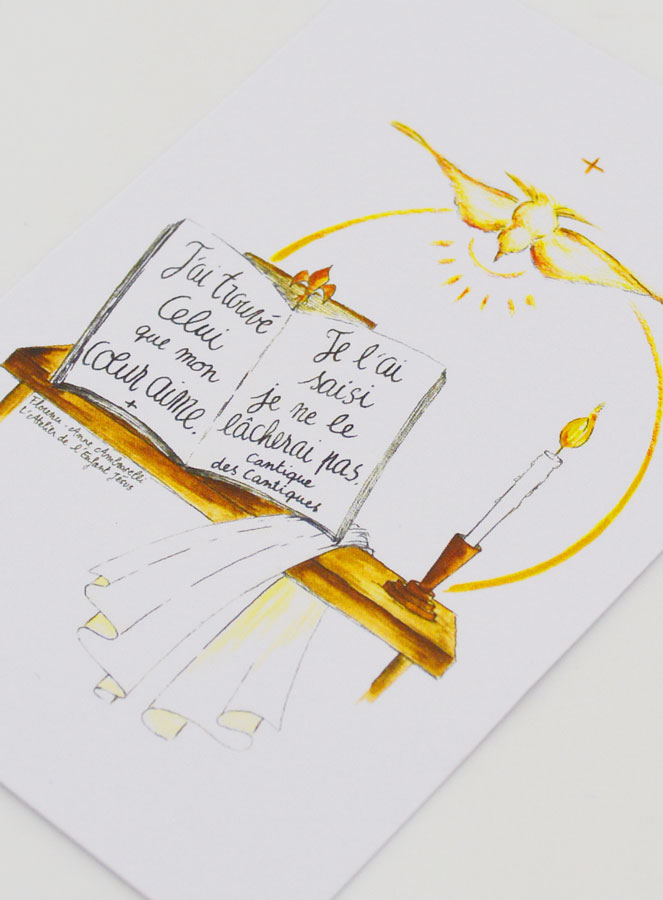 J'ai trouvé
Celui
que mon
cœur aime.
Je l'ai
saisi
je ne le
lâcherai pas.
Cantique
des Cantiques
Florence-Anne
L'Atelier de l'Enfant Jésus